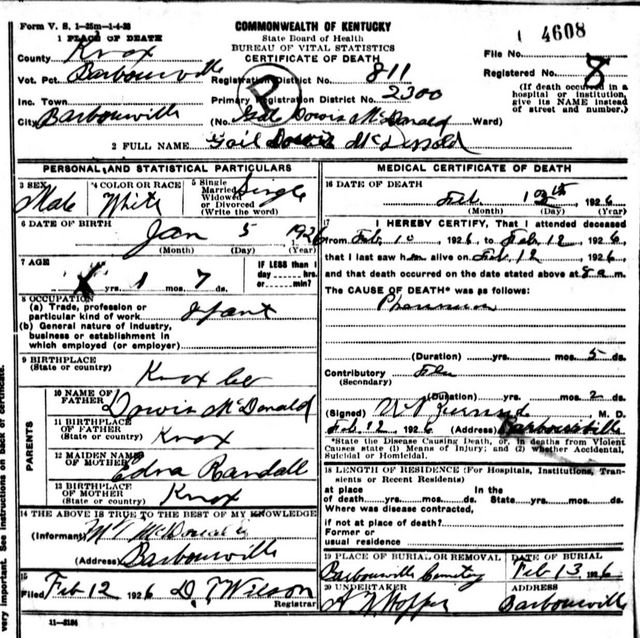 Form V. S. 1-25m-1-4-26
COMMONWEALTH OF KENTUCKY
4608
1 PLACE OF DEATH
State Board of Health
BUREAU OF VITAL STATISTICS
File No.
County Knox
CERTIFICATE OF DEATH
Vot. Pct. Barbourville
Registration District No. 811
Registered No. 8
Inc. Town
Primary Registration District No. 2300
(If death occurred in a
hospital or institution,
give its NAME instead
of street and number.)
City Barbourville
(No. Dowis McDonald Ward)
2 FULL NAME Gail Dowis McDonald
PERSONAL AND STATISTICAL PARTICULARS
3 SEX
Male
4 COLOR OR RACE
White
5 Single
Married
Widowed
or Divorced
(Write the word)
Single
6 DATE OF BIRTH
Jan 5 1926
(Month) (Day) (Year)
7 AGE
IF LESS than 1
day hrs.
or min?
yrs. 1 mos. 7
8 OCCUPATION
(a) Trade, profession or
particular kind of work Infant
(b) General nature of industry,
business or establishment in
which employed (or employer)
9 BIRTHPLACE
(State or country)
Knox Co
PARENTS
10 NAME OF
FATHER
Dowis McDonald
11 BIRTHPLACE
OF FATHER
(State or country) Knox
12 MAIDEN NAME
OF MOTHER
Edna Randall
13 BIRTHPLACE
OF MOTHER
(State or country) Knox
14 THE ABOVE IS TRUE TO THE BEST OF MY KNOWLEDGE
(Informant) McDonald
(Address) Barbourville
15
Filed Feb 12 1926 D. T Wilson
Registrar
11-3184
MEDICAL CERTIFICATE OF DEATH
16 DATE OF DEATH
Feb. 1926
(Month) (Day) (Year)
17 I HEREBY CERTIFY, That I attended deceased
from Feb, 10, 1926, to Feb, 12, 1926,
that I last saw him alive on Feb, 12, 1926,
and that death occurred on the date stated above at 8 a m.
The CAUSE OF DEATH* was as follows:
(Duration) yrs. mos. 5 ds.
Contributory Flu
(Secondary)
(Duration) yrs. mos. 2 ds.
(Signed) M. D.
Feb, 12 1926 (Address) Barbourville
*State the Disease Causing Death, or, in deaths from Violent
Causes state (1) Means of Injury; and (2) whether Accidental,
Suicidal or Homicidal.
18 LENGTH OF RESIDENCE (For Hospitals, Institutions, Tran-
sients or Recent Residents)
at place In the
of death yrs. mos. ds. State yrs. mos. ds.
Where was disease contracted,
if not at place of death?
Former or
usual residence
19 PLACE OF BURIAL OR REMOVAL
Barbourville Cemetery
DATE OF BURIAL
Feb 13 1926
20 UNDERTAKER
Hopper
ADDRESS
Barbourville
very important. See instructions on back of certificate.